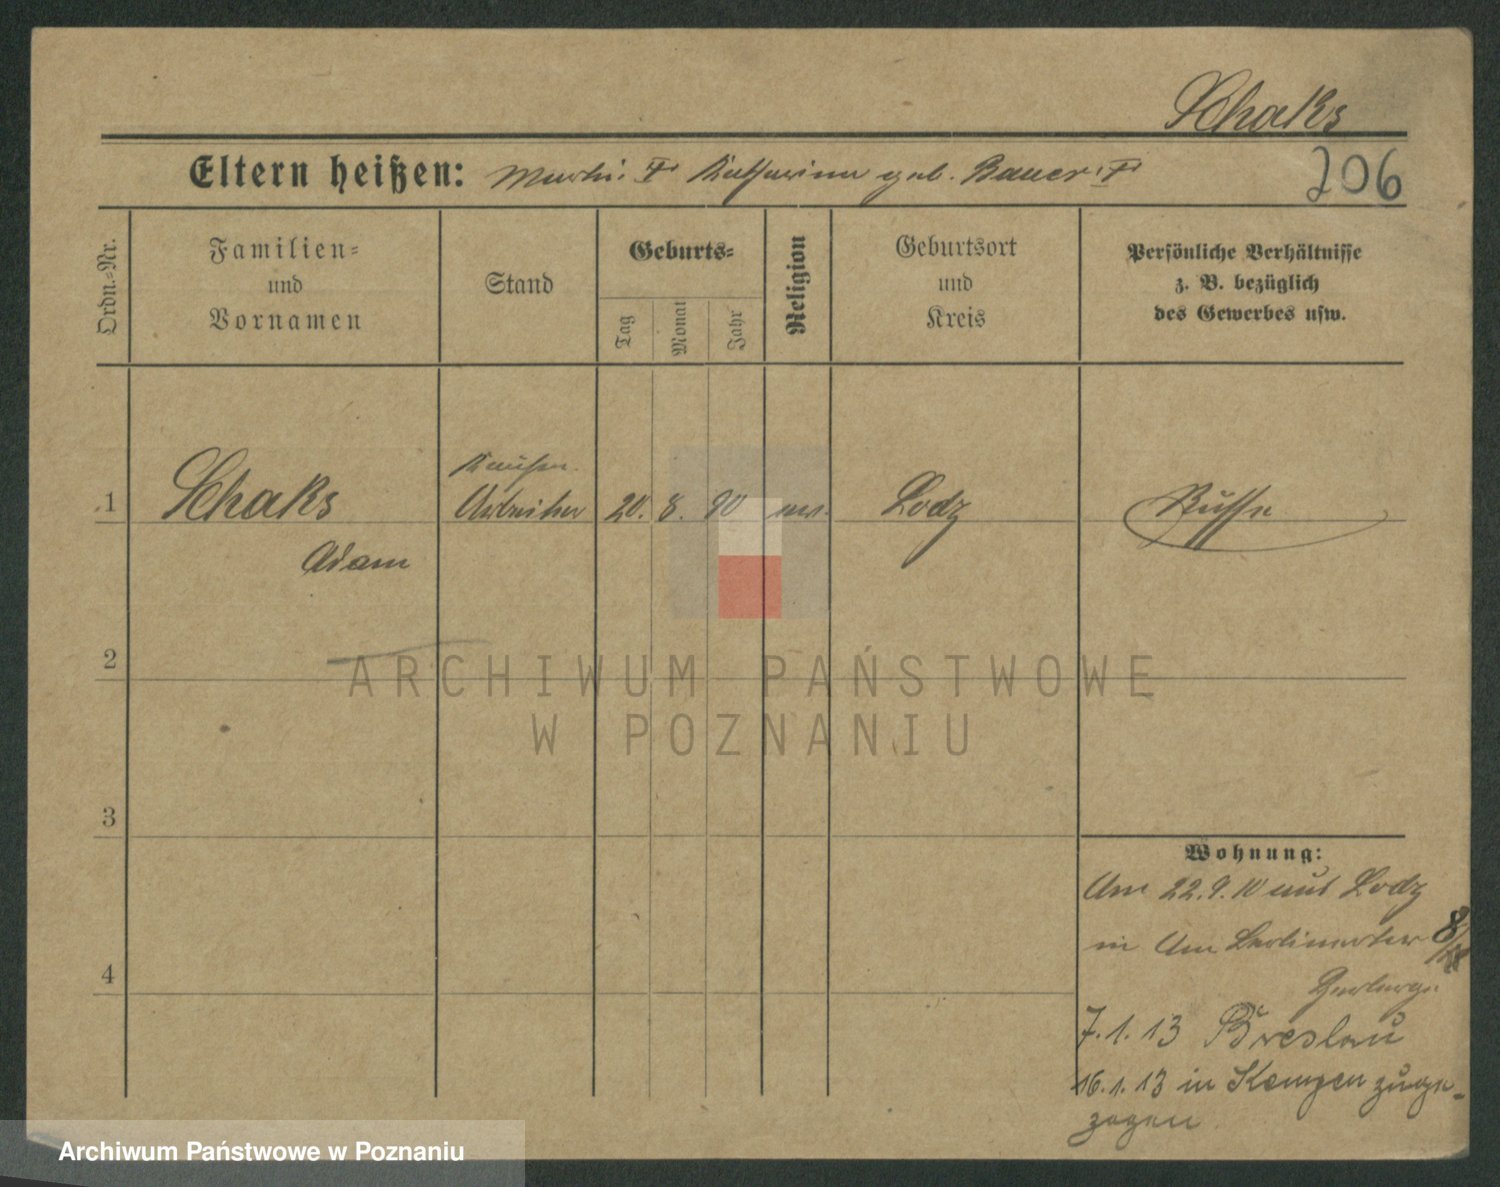 Schaks
Eltern heißen: Martin † Katharina geb. Bauer †
206
Ordn.=Nr.
Familien=
und
Vornamen
Stand
Geburts=
Tag
Monat
Jahr
Religion
Geburtsort
und
Kreis
Persönliche Verhältnisse
z. B. bezüglich
des Gewerbes usw.
1 Schaks Arbeiter 20. 8. 90 Lodz Russe
Adam
2
3
4
Wohnung:
Am 22.9.10 aus Lodz
in Am Berlinertor 8/
Herberge
7.1.13 Breslau
16.1.13 in Kempen zuge-
zogen
ARCHIWUM PAŃSTWOWE
W POZNANIU
Archiwum Państwowe w Poznaniu